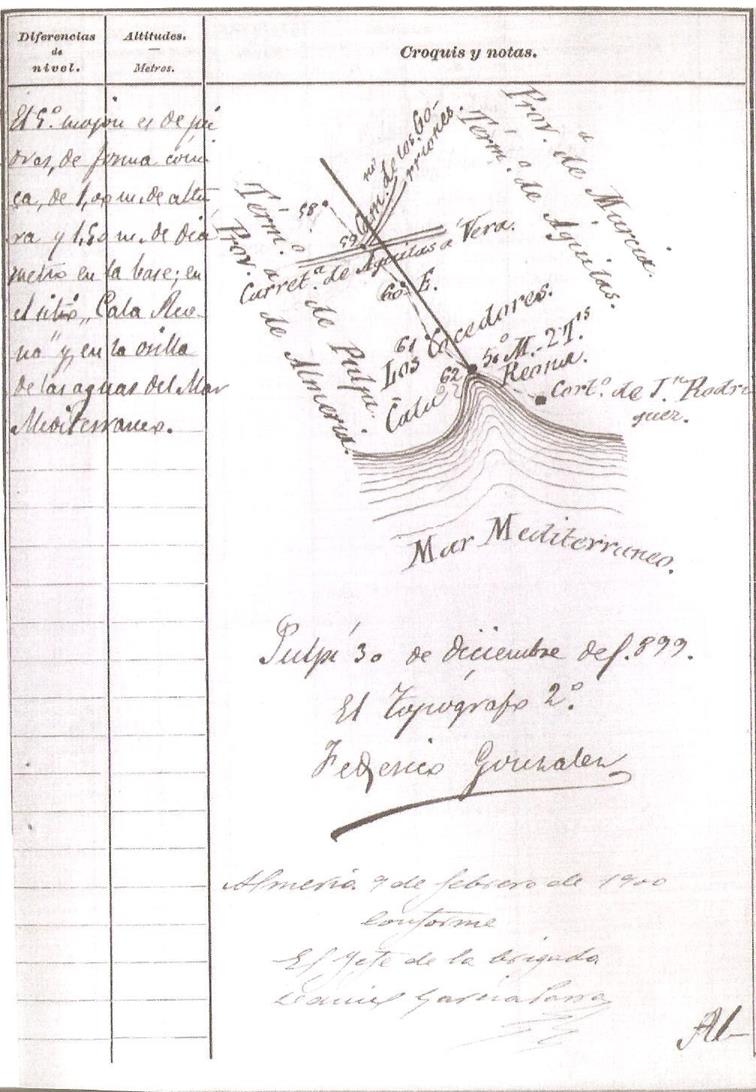 Diferencias
de
nivel.
Altitudes.
—
Metros.
Croquis y notas.
El 5.º mojon es de pie
dras, de forma coni
ca, de 1,00 m. de altu
ra y 1,50 m. de diá
metro en la base; en
el sitio „Cala Reo
na" y en la orilla
de las aguas del Mar
Mediterraneo.
Prov.ª de Murcia.
Térm.º de Águilas.
Cam.no de los Go-
rriones.
Térm.º de Pulpí.
Prov.ª de Almería.
58
59
Carret.ª de Aguilas á Vera.
60 E.
61
Los Cocedores.
62
5º M.-2 T.s
Cala Reona.
Cort.º de J.n Rodri
guez.
Mar Mediterraneo.
Pulpí 30 de diciembre de 1.899.
El Topógrafo 2.º
Federico Gonzalez
Almería 9 de febrero de 1900
Conforme
El Jefe de la brigada
García Parra